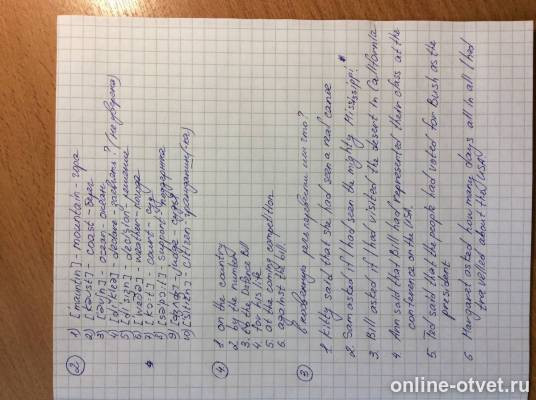 ②
1) [mauntin] - mountain - гора
2) [kəust] - coast - берег
3) [əuʃn] - ocean - океан
4) - declare - (не уверена)
5) - decision - решение
6) [weðə] - weather - погода
7) [kɔ:t] - court - суд
8) [səpɔ:t] - support - поддержка
9) - judge - судья
10) [sitizn] - citizen - гражданин(-ка)
④
1. on the country
2. by the number
3. to the Defence Bill
4. for his life
5. at the coming competition
6. against the bill.
③
в косвенную речь перевести или что?
1. Kitty said that she had seen a real canoe
2. Sam asked if I had seen the mighty Mississippi.
3. Bill asked if I had visited the desert in California
4. Ann said that Bill had represented their class at the
conference on the USA.
5. Tod said that the people had voted for Bush as the
president
6. Margaret asked how many days all in all I had
travelled about the USA
online-otvet.ru